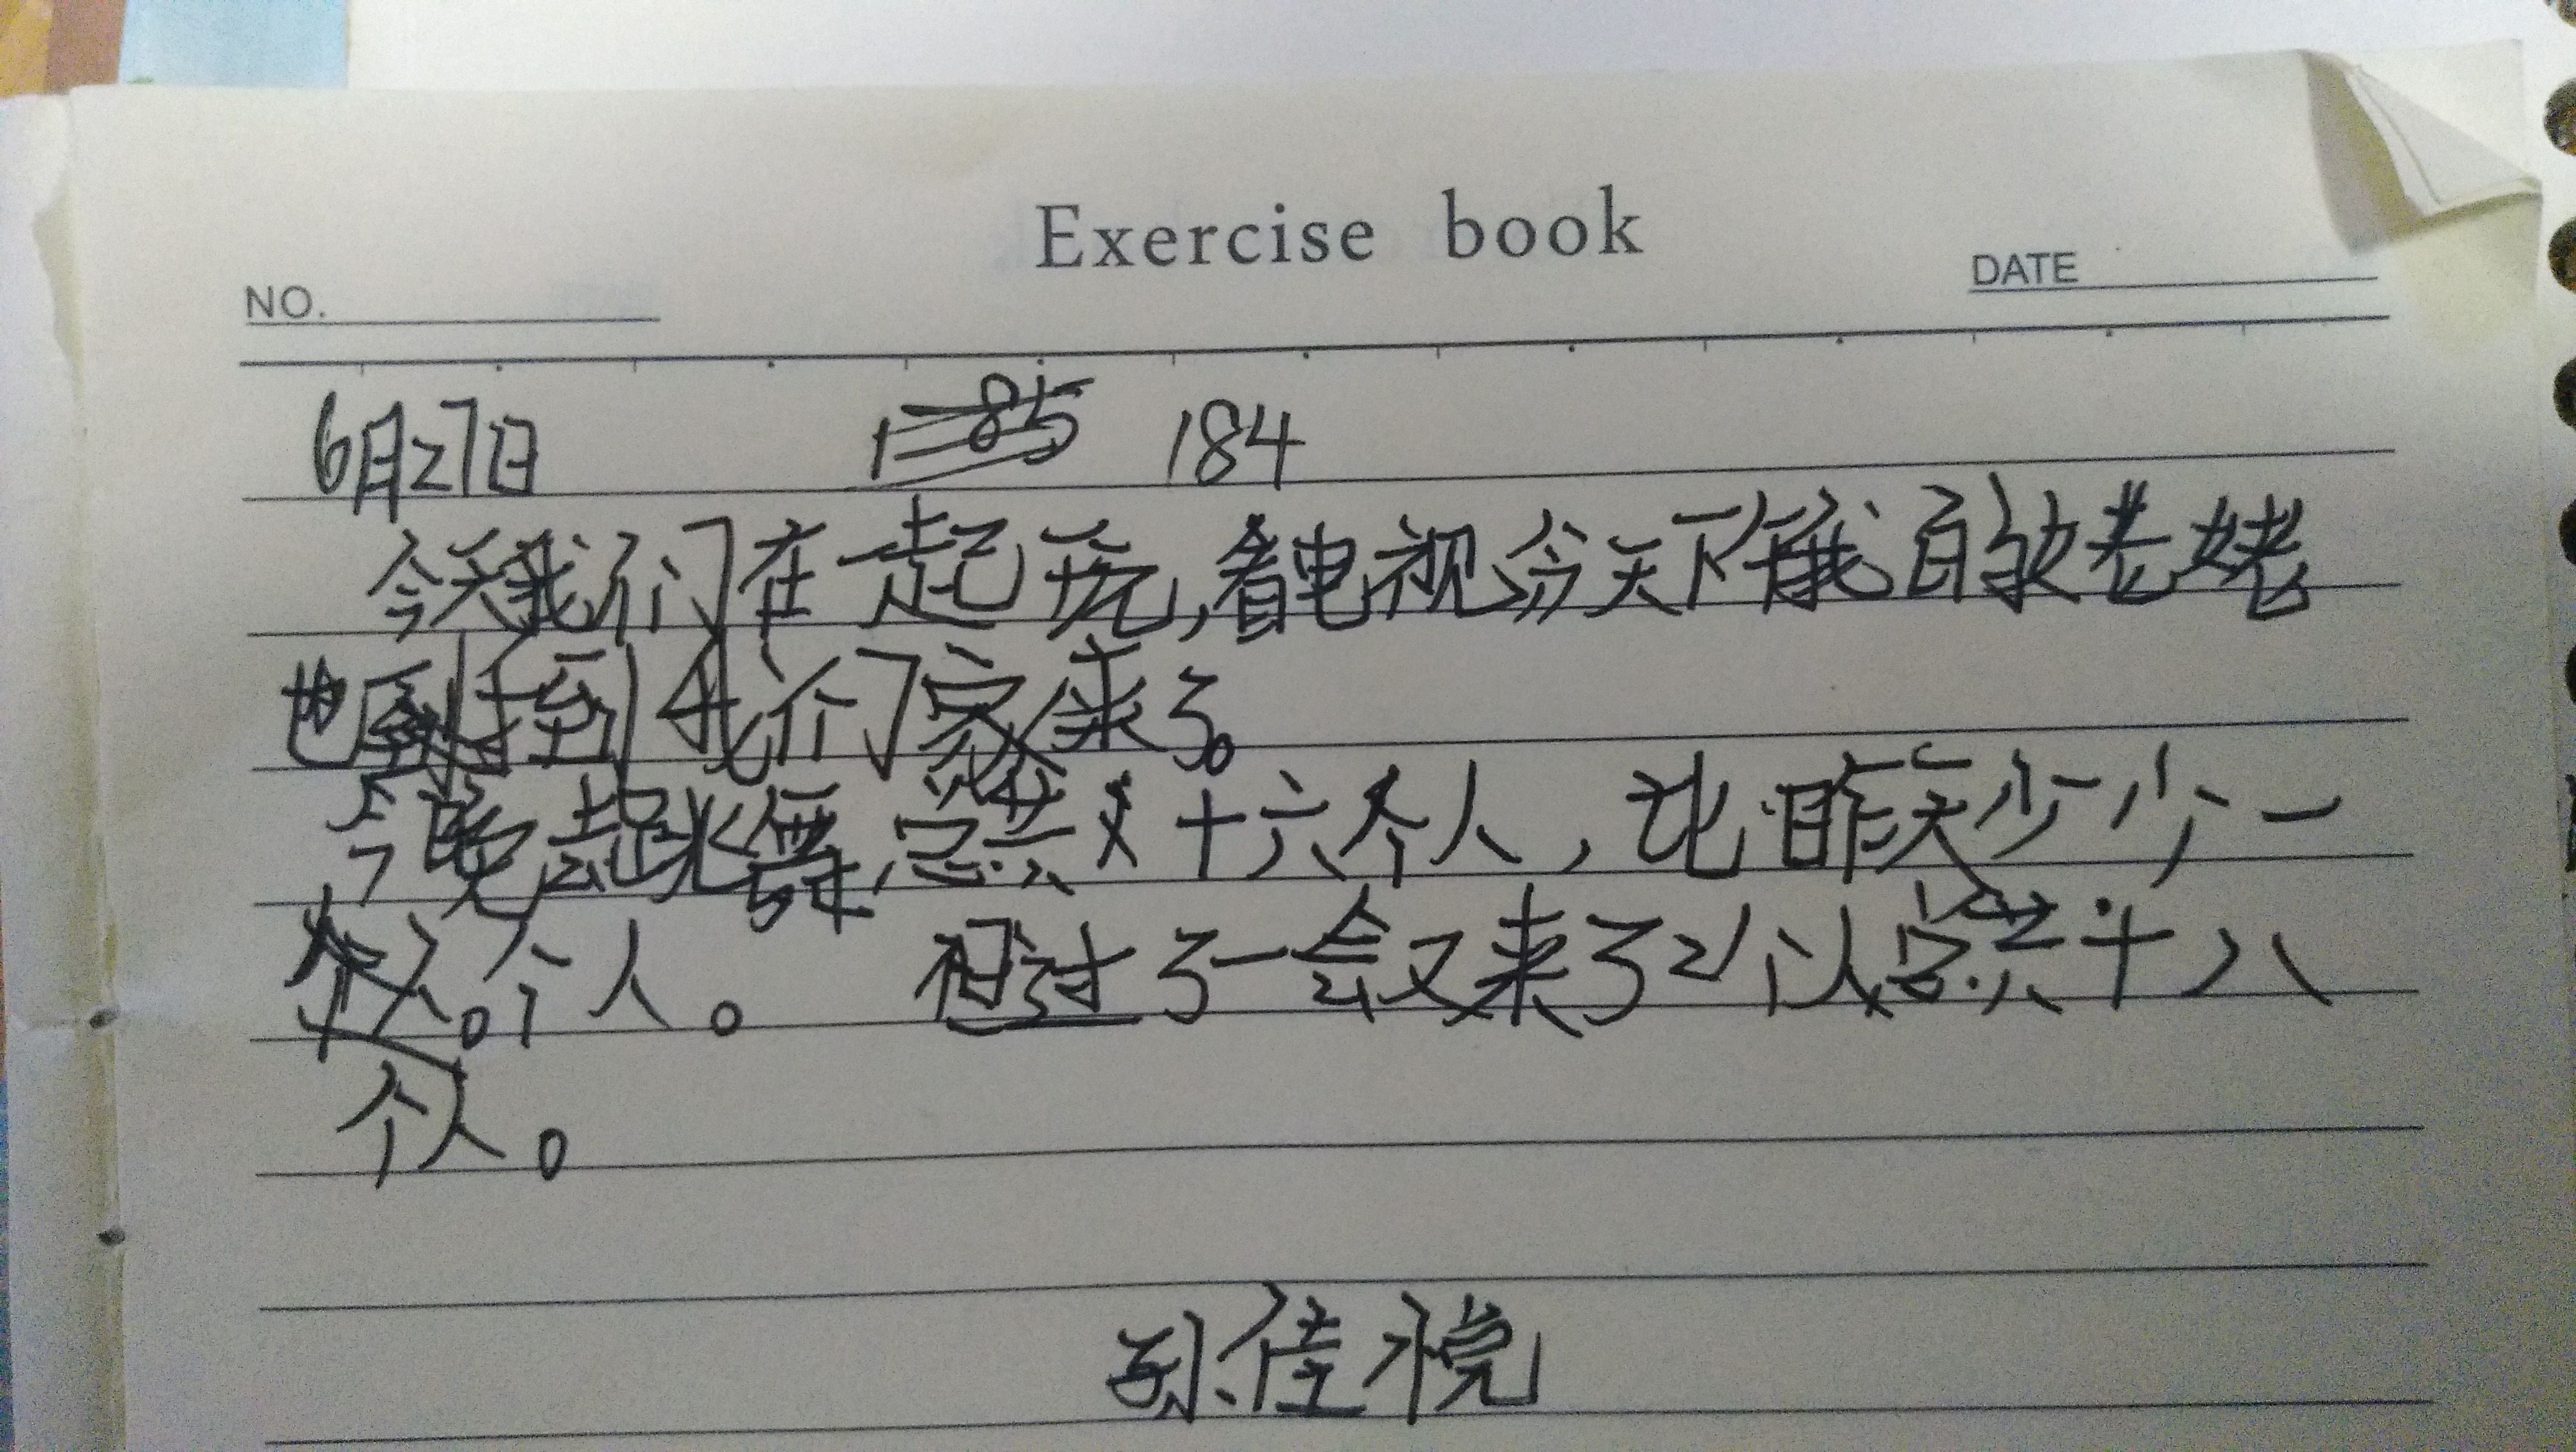 Exercise book
NO.
DATE
6月27日 184
今天我们在一起玩,看电视今天下我自的老姥
也到我们家来了。
今晚去跳舞,总共十六个人,比昨天少少一
个人。但过了一会又来了2个人总共十八
个人。
孙佳悦